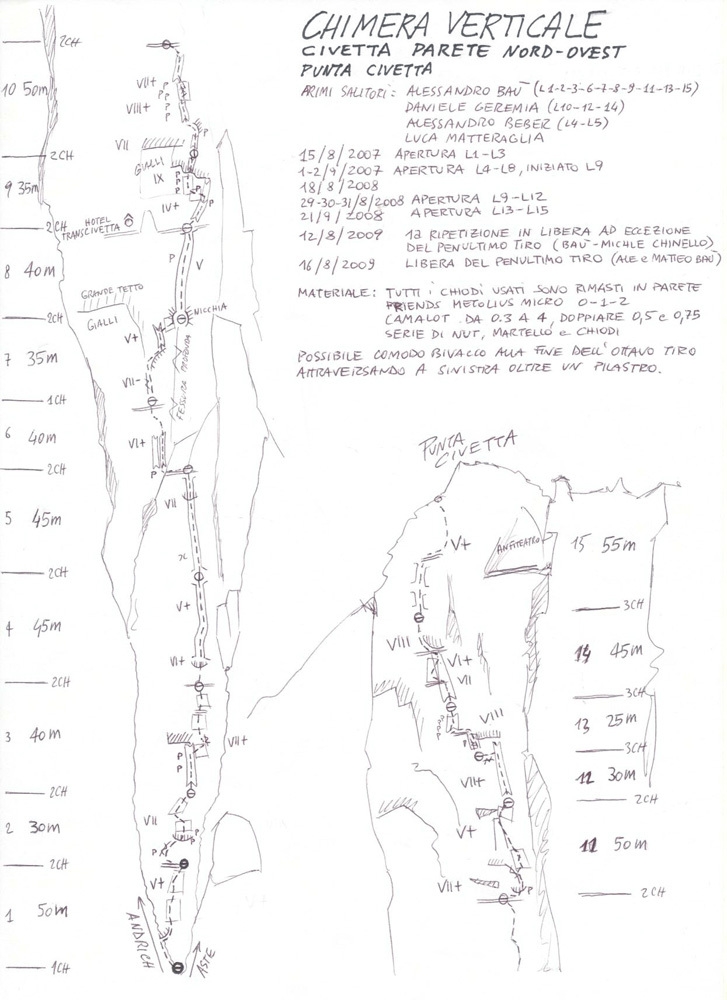 CHIMERA VERTICALE
CIVETTA PARETE NORD-OVEST
PUNTA CIVETTA
PRIMI SALITORI: ALESSANDRO BAÙ (L1-2-3-6-7-8-9-11-13-15)
DANIELE GEREMIA (L10-12-14)
ALESSANDRO BEBER (L4-L5)
LUCA MATTERAGLIA
15/8/2007 APERTURA L1-L3
1-2/9/2007 APERTURA L4-L8, INIZIATO L9
18/8/2008
29-30-31/8/2008 APERTURA L9-L12
21/9/2008 APERTURA L13-L15
12/8/2009 1a RIPETIZIONE IN LIBERA AD ECCEZIONE
DEL PENULTIMO TIRO (BAÙ-MICHLE CHINELLO)
16/8/2009 LIBERA DEL PENULTIMO TIRO (ALE e MATTEO BAÙ)
MATERIALE: TUTTI i CHIODI USATI SONO RIMASTI IN PARETE
FRIENDS METOLIUS MICRO 0-1-2
CAMALOT DA 0.3 A 4, DOPPIARE 0,5 e 0,75
SERIE DI NUT, MARTELLO e CHIODI
POSSIBILE COMODO BIVACCO ALLA FINE DELL'OTTAVO TIRO
ATTRAVERSANDO A SINISTRA OLTRE UN PILASTRO.
2CH
10 50m
VII+
P
P
P
VIII+
P
VII
2CH
GIALLI
IX
P
P
P
P
9 35m
IV+
2CH
HOTEL
TRANSCIVETTA
P
V
8 40m
GRANDE TETTO
NICCHIA
2CH
GIALLI
V+
FESSURA PROFONDA
7 35m
VII-
1CH
6 40m
VI+
P
2CH
VII
5 45m
2CH
V+
4 45m
VI+
2CH
3 40m
VII+
P
P
2CH
VII
2 30m
P
P
2CH
V+
1 50m
ANDRICH
ASTE
1CH
PUNTA
CIVETTA
V+
ANFITEATRO
15 55m
3CH
VIII
VI+
VII
14 45m
3CH
VIII
13 25m
3CH
VII+
12 30m
2CH
V+
11 50m
VII+
P
2CH